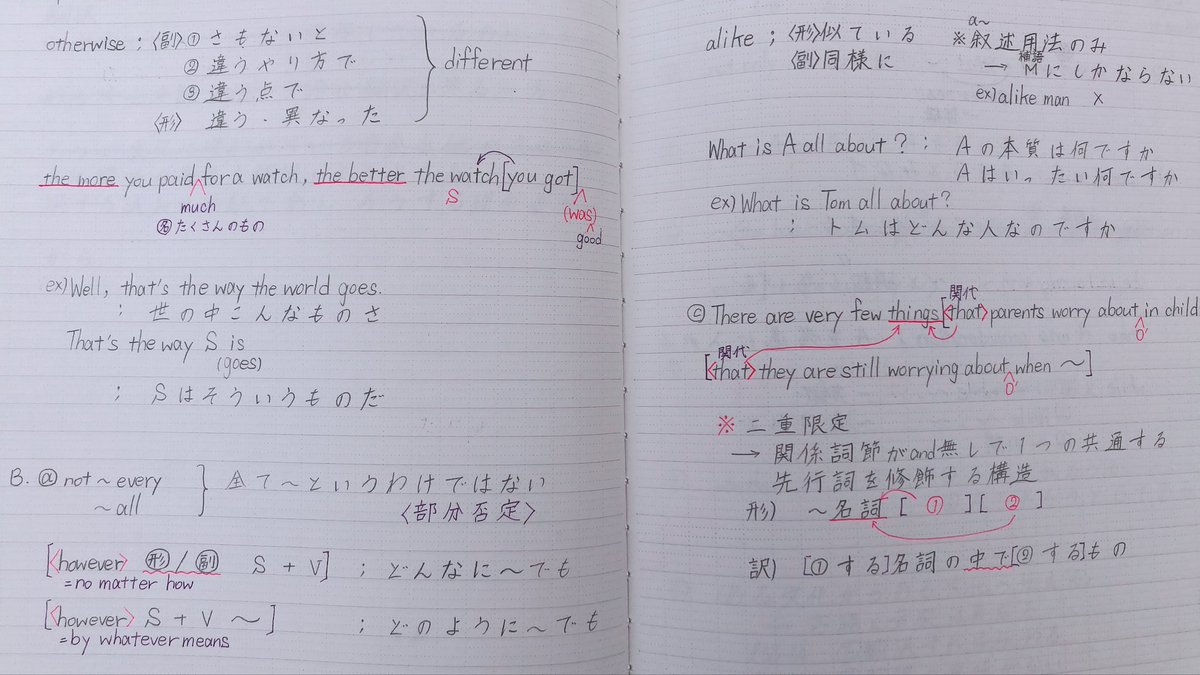 otherwise ; 〈副〉① さもないと
② 違うやり方で
③ 違う点で
〈形〉 違う・異なった
different
the more you paid for a watch, the better the watch [you got]
S
much
(was)
㊔たくさんのもの
good
ex) Well, that's the way the world goes.
; 世の中こんなものさ
That's the way S is
(goes)
; Sはそういうものだ
B. ⓐ not ~ every
~ all
全て~というわけではない
〈部分否定〉
[〈however〉 形/副 S + V] ; どんなに~でも
=no matter how
[〈however〉 S + V ~] ; どのように~でも
=by whatever means
alike ; 〈形〉似ている
〈副〉同様に
a~
※叙述用法のみ
補語
→ Mにしかならない
ex) alike man ×
What is A all about? ; Aの本質は何ですか
Aはいったい何ですか
ex) What is Tom all about?
; トムはどんな人なのですか
関代
ⓒ There are very few things [〈that〉 parents worry about in child
O'
関代
[〈that〉 they are still worrying about when ~]
O'
※ 二重限定
→ 関係詞節がand無しで1つの共通する
先行詞を修飾する構造
形) ~名詞 [ ① ][ ② ]
訳) [①する]名詞の中で[②する]もの